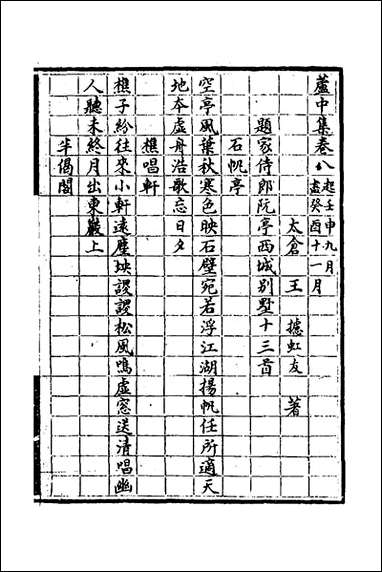 蘆中集卷八 起壬申九月盡癸酉十一月
太倉 王 攄虹友 著
題家侍郎阮亭西城別墅十三首
石帆亭
空亭風葉秋寒色映石壁宛若浮江湖揚帆任所適天
地本虛舟浩歌忘日夕
樵唱軒
樵子紛往來小軒遠塵坱謖謖松風鳴虛窓送清唱幽
人聽未終月出東巖上
半偈閣